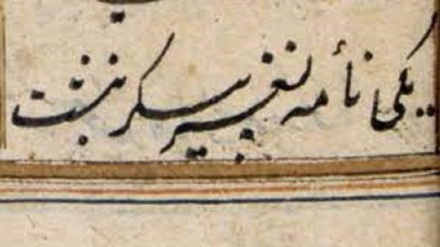 یکی نامهٔ نغز پیکر نبشت